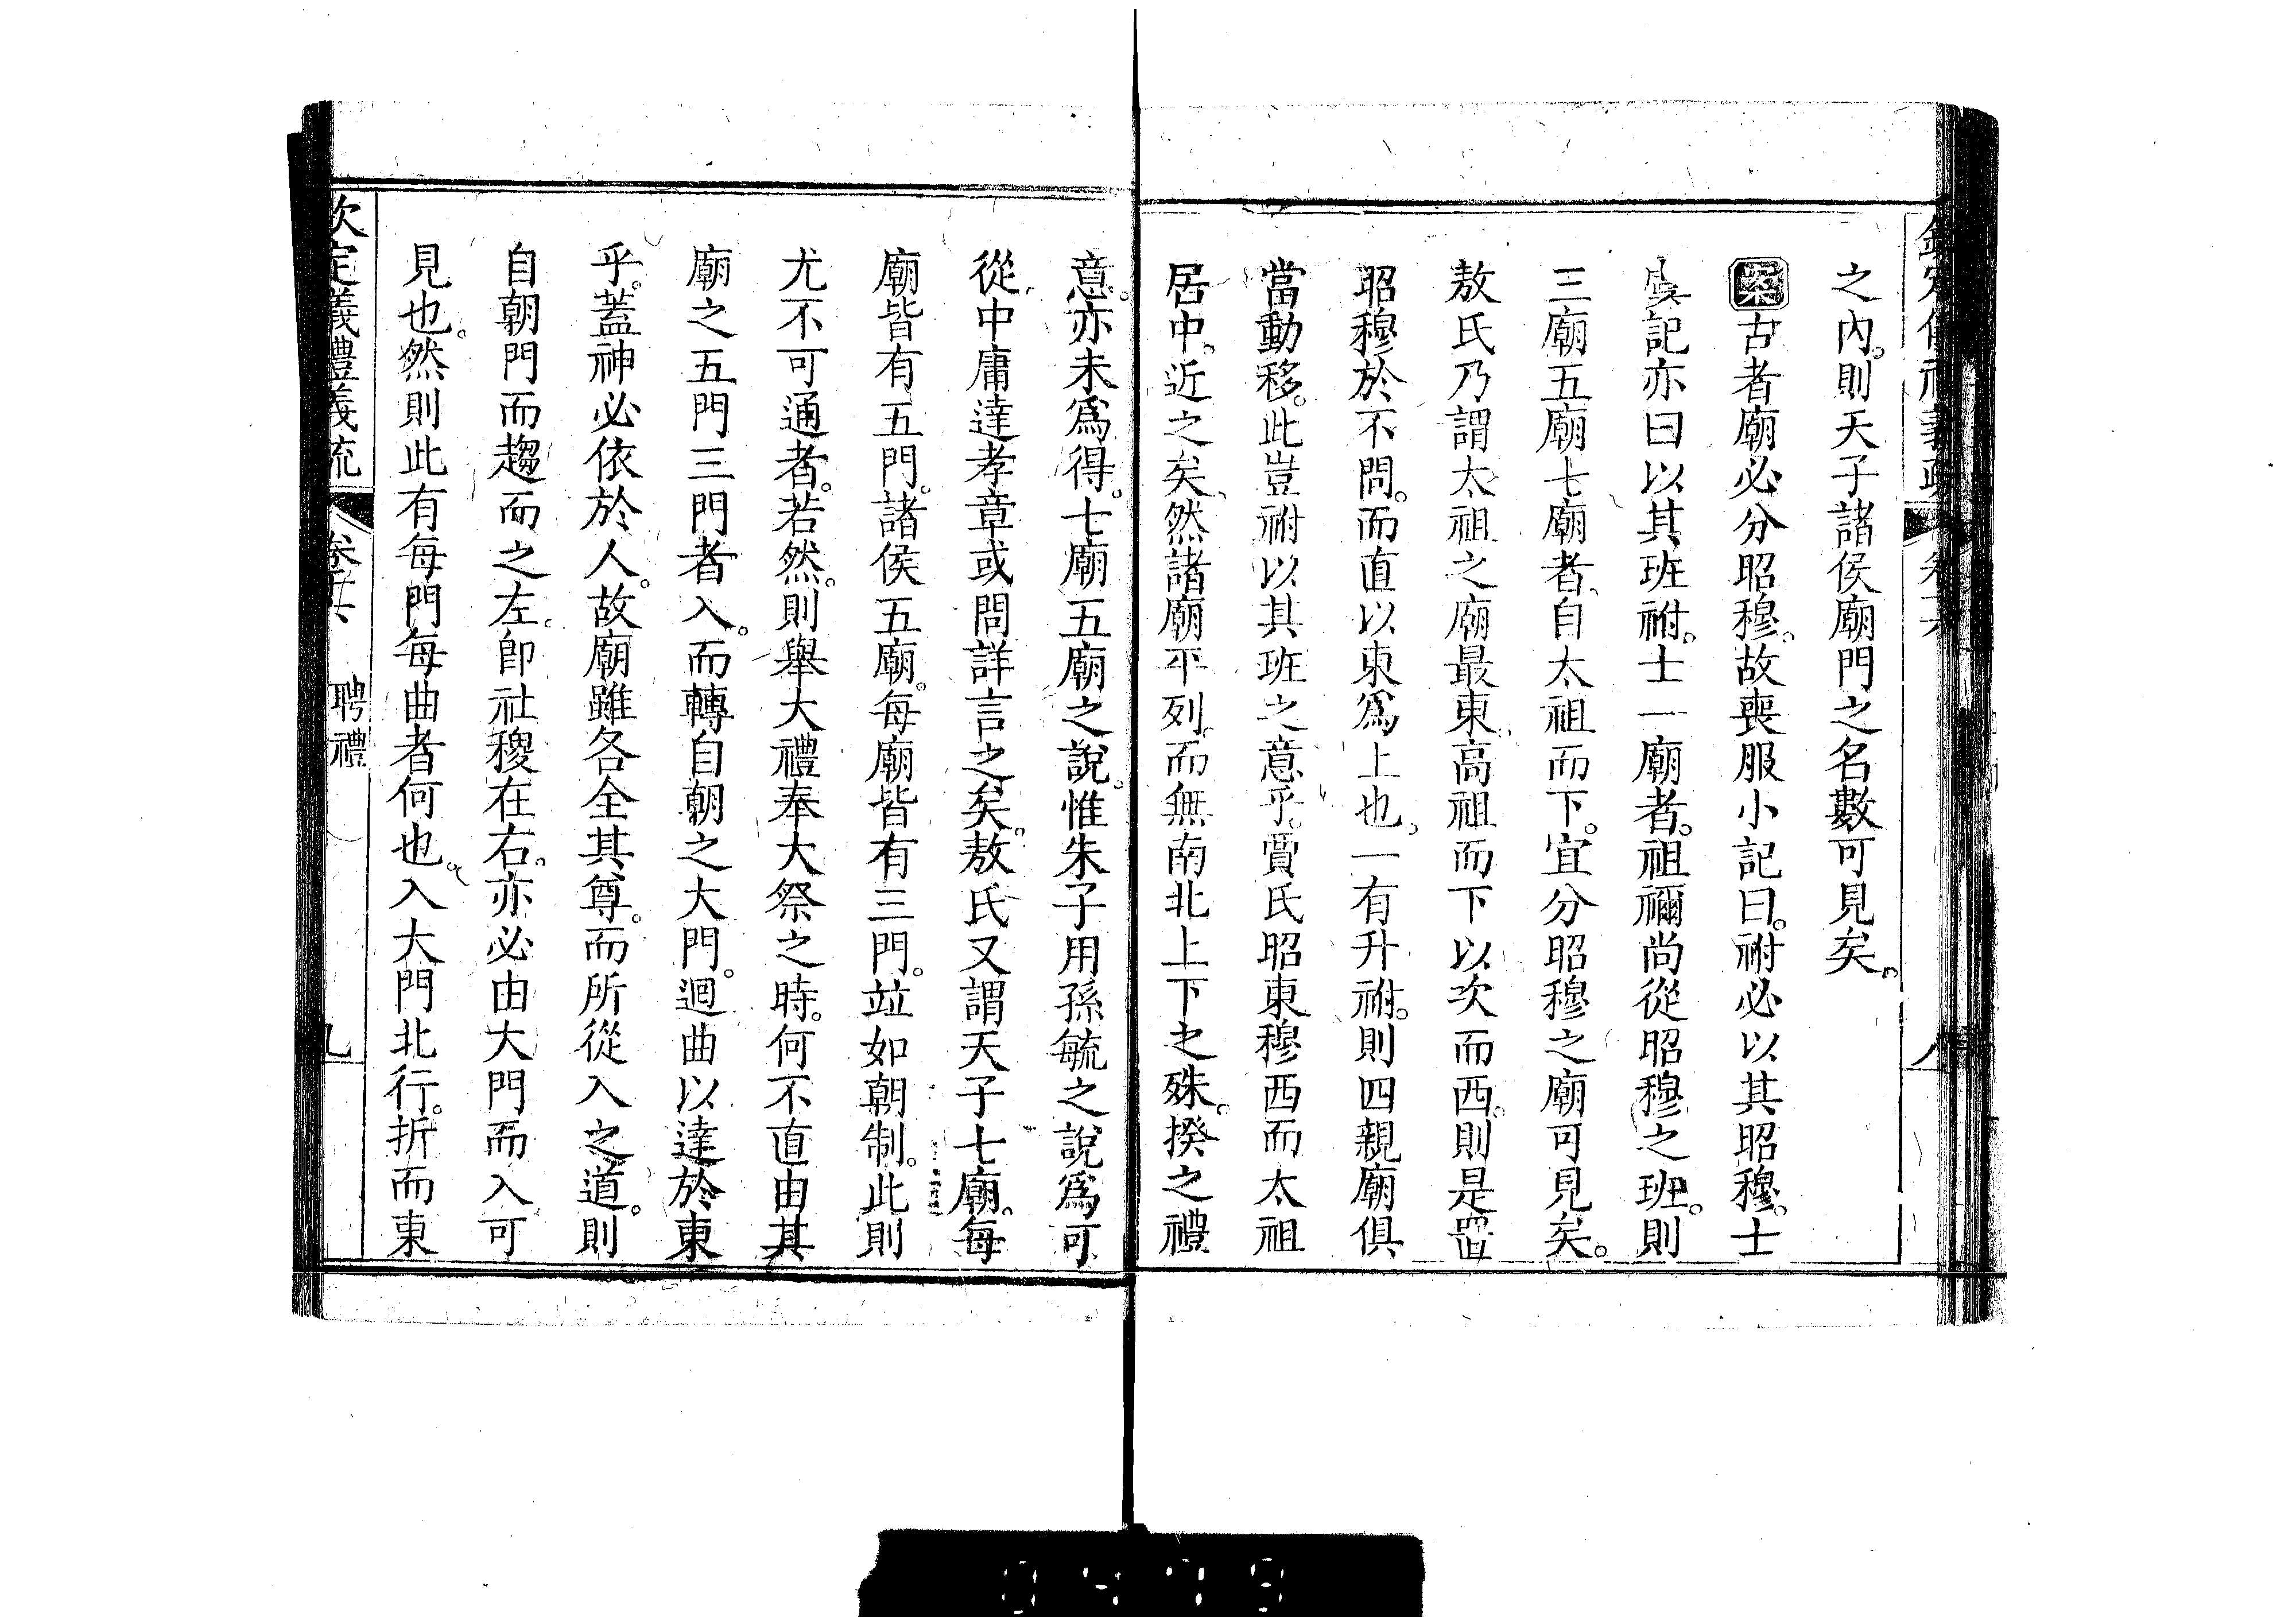 之內。則天子諸侯廟門之名數可見矣。
案古者廟必分昭穆。故喪服小記曰。祔必以其昭穆。士
虞記亦曰以其班祔。士一廟者。祖禰尚從昭穆之班。則
三廟五廟七廟者、自太祖而下。宜分昭穆之廟可見矣。
敖氏乃謂太祖之廟最東、高祖而下以次而西。則是置
昭穆於不問。而直以東爲上也。一有升祔。則四親廟俱
當動移。此豈祔以其班之意乎。賈氏昭東穆西而太祖
居中。近之矣、然諸廟平列。而無南北上下之殊。揆之禮
意。亦未爲得。七廟五廟之說。惟朱子用孫毓之說爲可
從、中庸達孝章或問詳言之矣。敖氏又謂天子七廟。每
廟皆有五門。諸侯五廟。每廟皆有三門。竝如朝制。此則
尤不可通者。若然。則舉大禮奉大祭之時。何不直由其
廟之五門三門者入。而轉自朝之大門。迴曲以達於東
乎。蓋神必依於人。故廟雖各全其尊。而所從入之道。則
自朝門而趨而之左。卽社稷在右。亦必由大門而入可
見也。然則此有每門每曲者何也。入大門北行。折而東
欽定義禮義疏 卷十六 聘禮 九